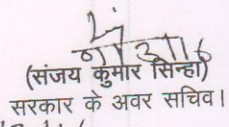 (संजय कुमार सिन्हा)
सरकार के अवर सचिव।